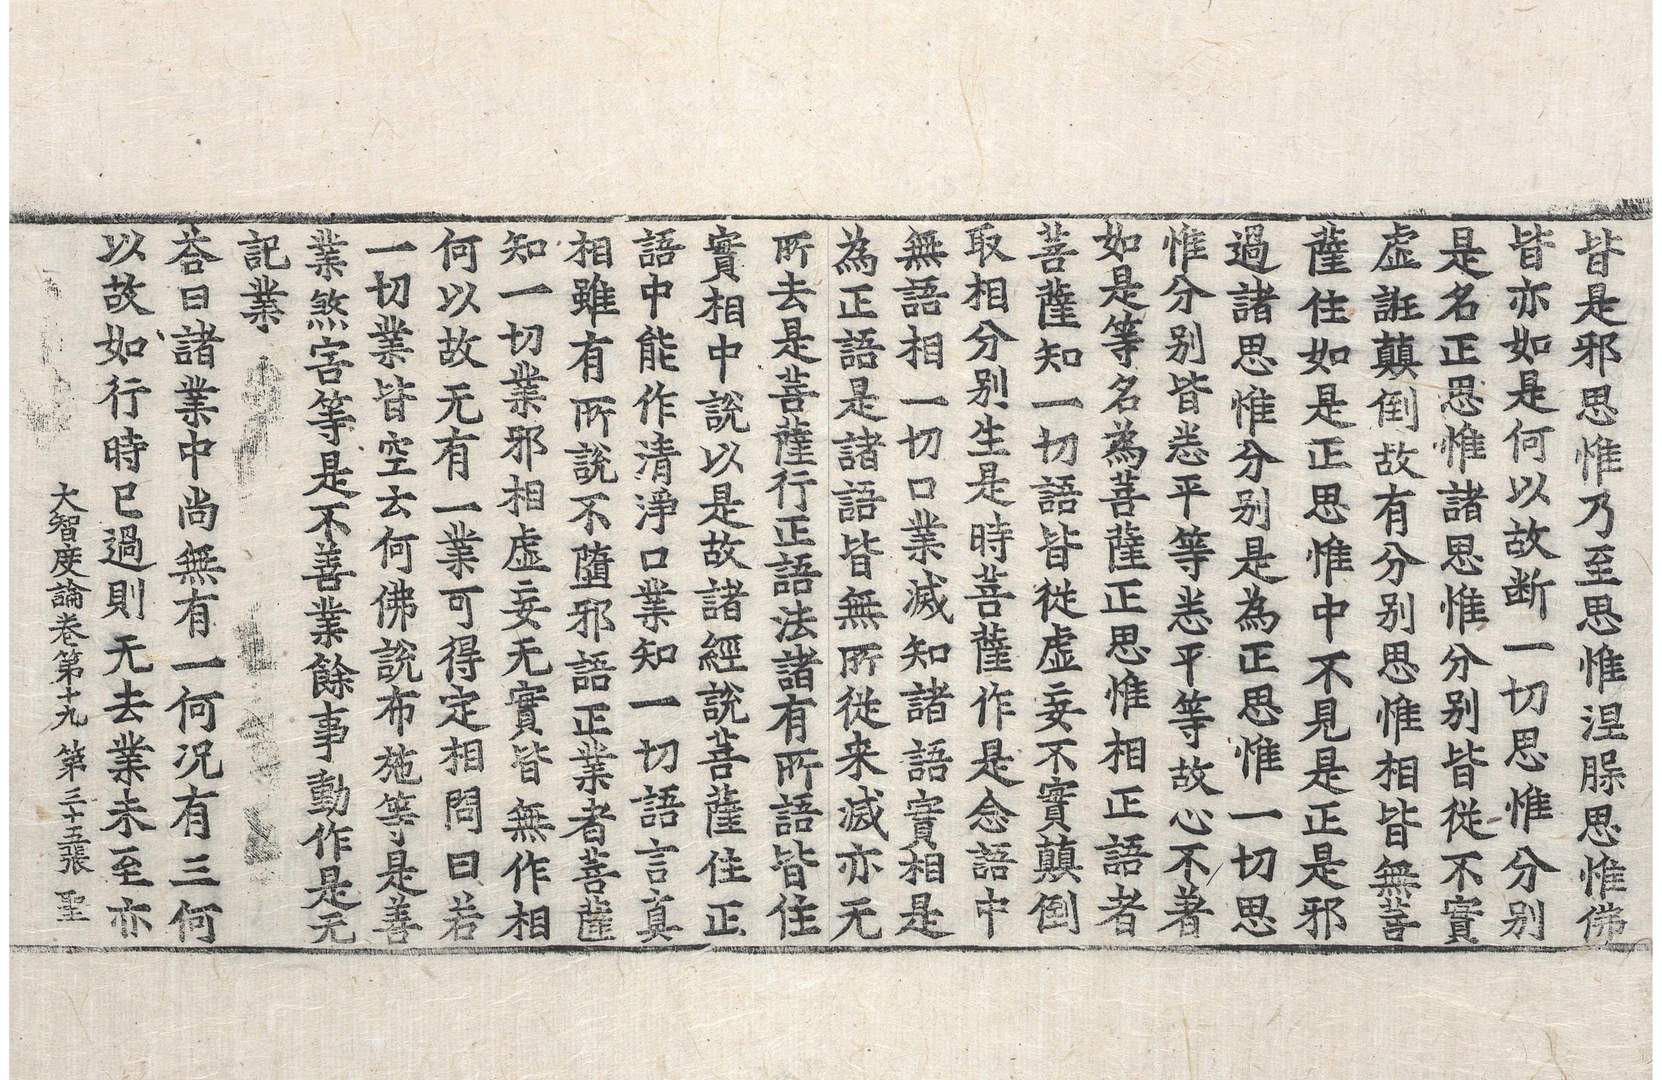 皆是邪思惟乃至思惟涅槃思惟佛
皆亦如是何以故断一切思惟分别
是名正思惟諸思惟分别皆從不實
虛誑顛倒故有分别思惟相皆無菩
薩住如是正思惟中不見是正是邪
過諸思惟分别是為正思惟一切思
惟分别皆悉平等悉平等故心不著
如是等名為菩薩正思惟相正語者
菩薩知一切語皆從虛妄不實顛倒
取相分别生是時菩薩作是念語中
無語相一切口業滅知諸語實相是
為正語是諸語皆無所從来滅亦无
所去是菩薩行正語法諸有所語皆住
實相中說以是故諸經說菩薩住正
語中能作清淨口業知一切語言真
相雖有所說不墮邪語正業者菩薩
知一切業邪相虛妄无實皆無作相
何以故无有一業可得定相問曰若
一切業皆空云何佛說布施等是善
業煞害等是不善業餘事動作是无
記業
荅曰諸業中尚無有一何况有三何
以故如行時已過則无去業未至亦
大智度論卷第十九 第三十五張 聖